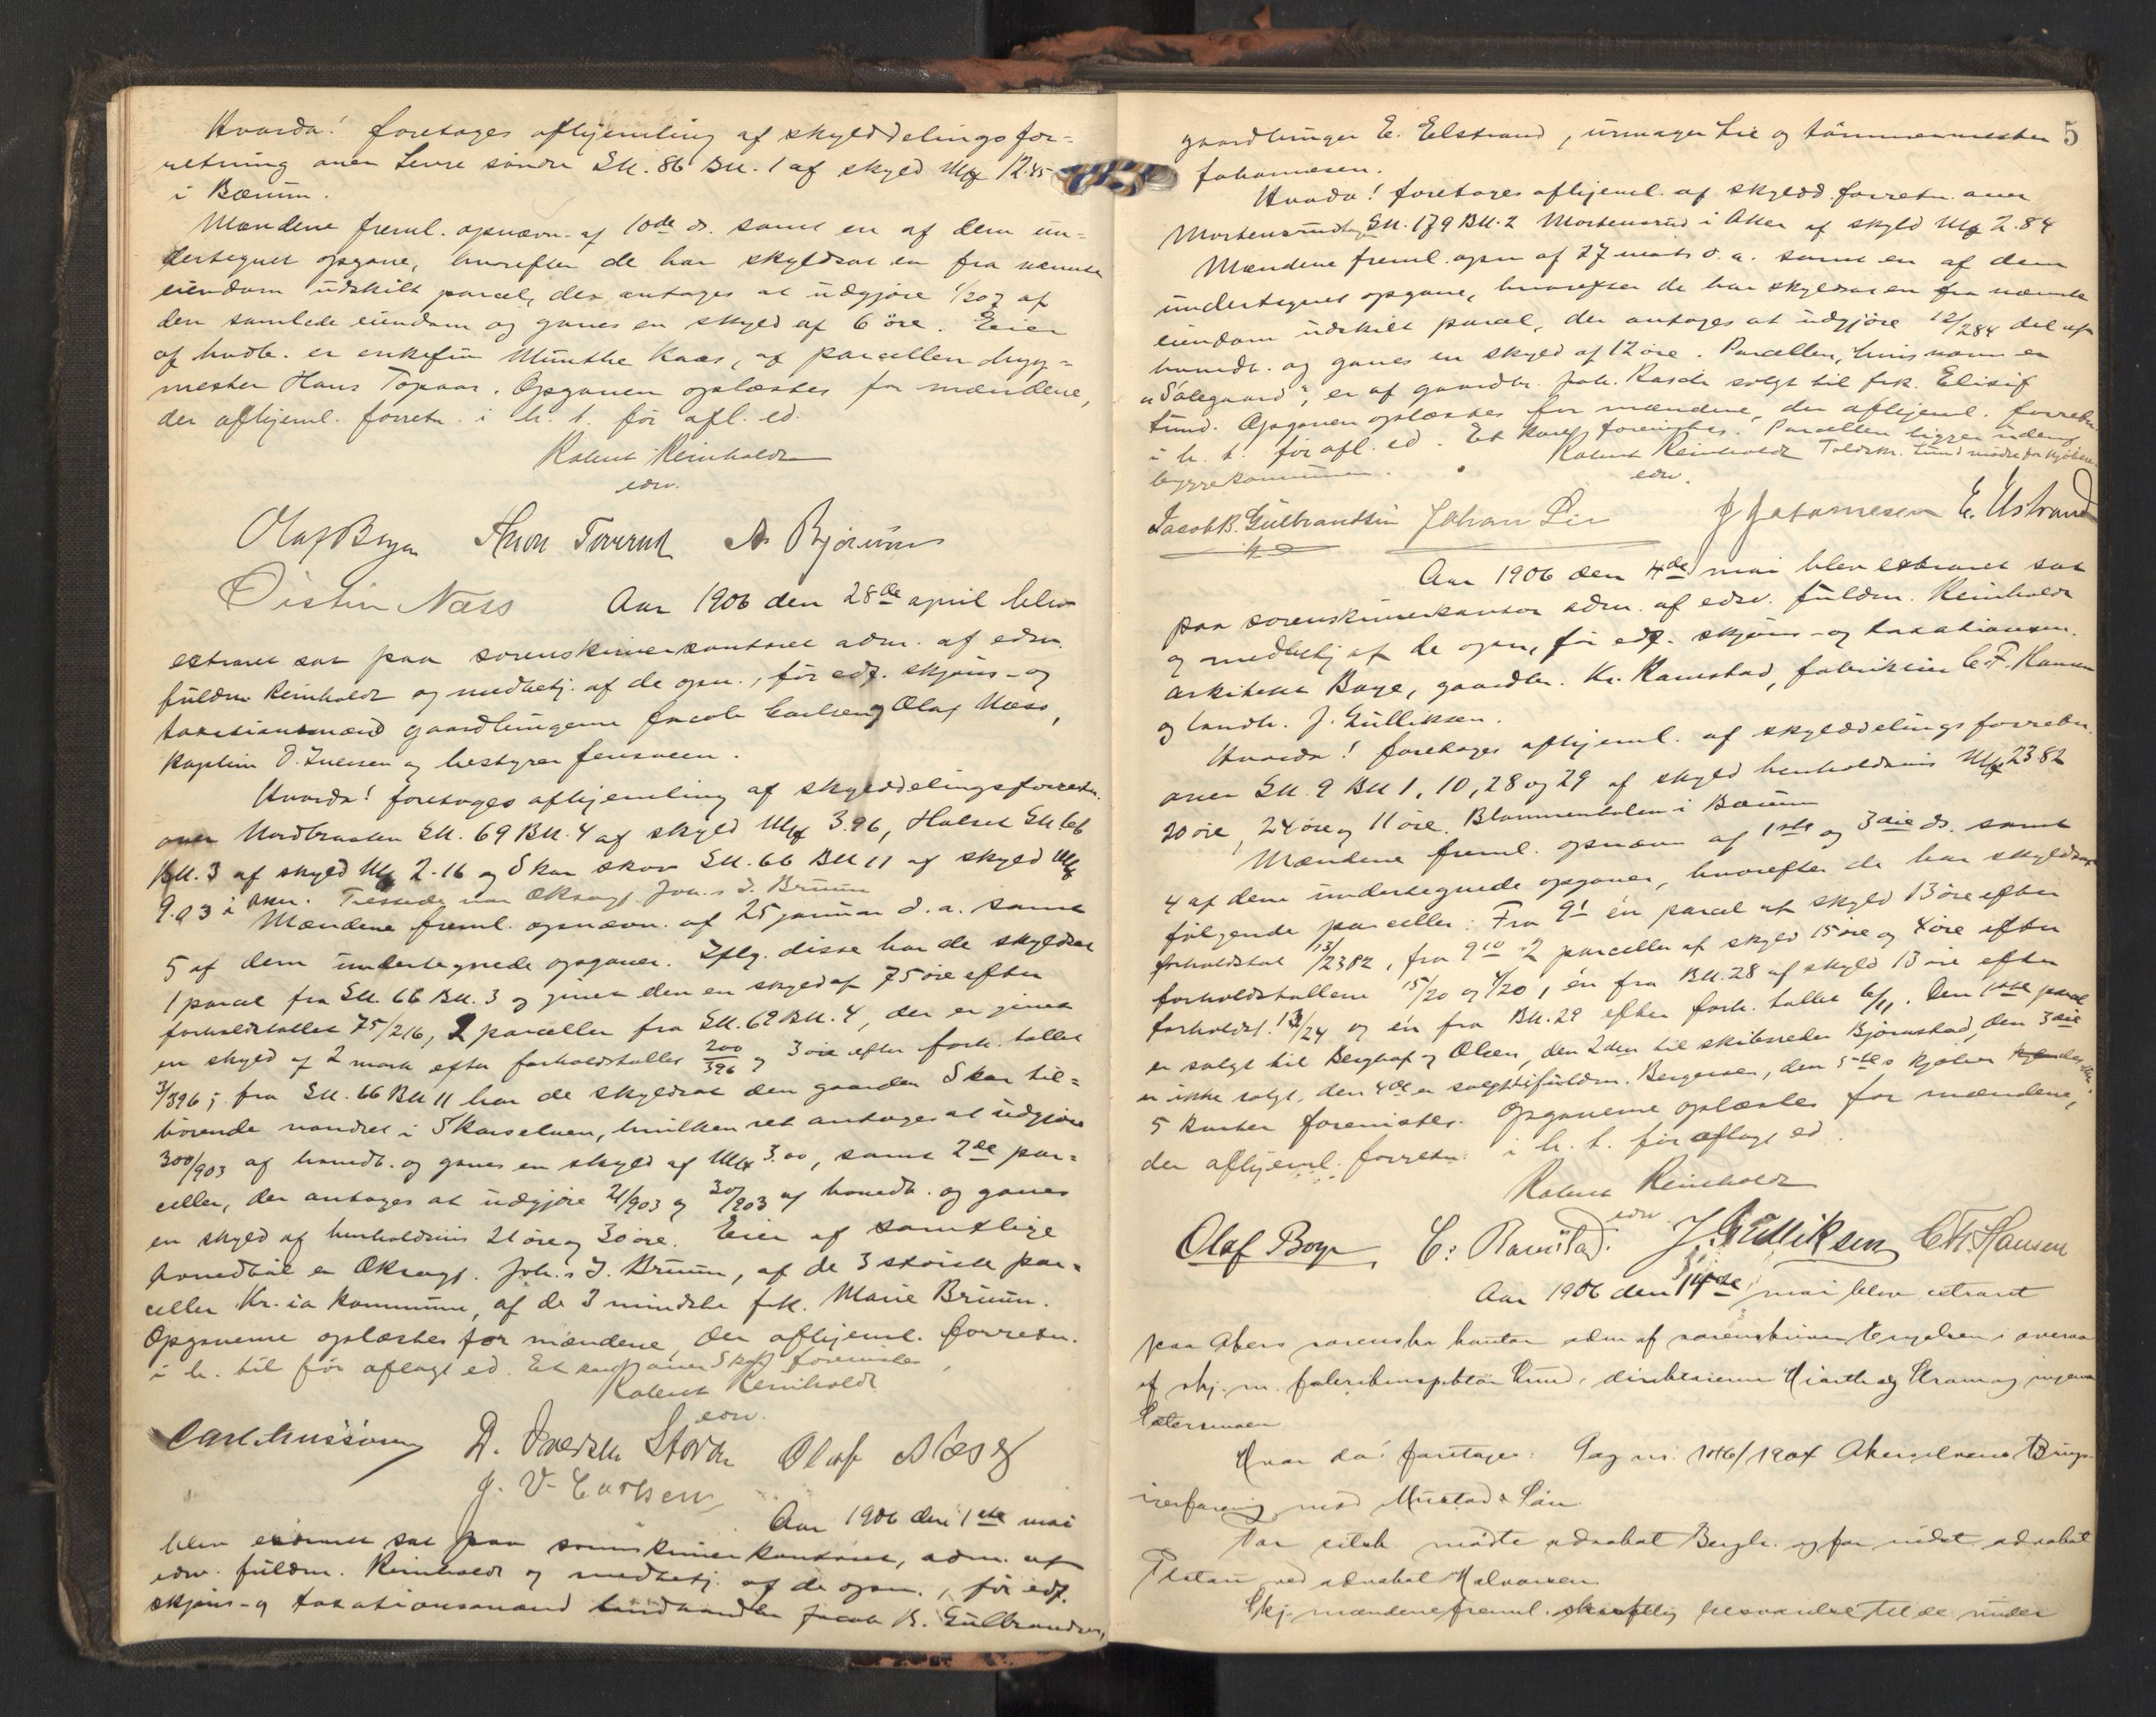 Hvorda! foretoges afhjemling af skylddelingsfor-
retning over Levre söndre Gn. 86 Bn. 1 af skyld Mk 12.45
i Bærum.
Mændene freml. opnævn. af 10de ds. samt en af dem un-
dertegnet opgave, hvorefter de har skyldsat en fra nævnte
eiendom udskilt parcel, der antages at udgjöre 1/207 af
den samlede eiendom og gaves en skyld af 6 öre. Eier
af hovdb. er enkefru Munthe Kaas, af parcellen byg-
mester Hans Topaas. Opgaven oplæstes for mændene,
der afhjeml. forretn. i h. t. för afl. ed.
Robert Reinholdt
edsv.
Olaf Boye Simon Toverud A. Bjørum
Öistein Næss Aar 1906 den 28de april blev
extraret sat paa sorenskriverkontoret adm. af edsv.
fuldm Reinholdt og medbetj. af de opn., för edf. skjöns- og
taxationsmænd gaardbrugerne Jacob Carlsen og Olaf Næss,
kaptein D. Iversen og bestyrer
Hvorda! foretoges afhjemling af skylddelingsforretn.
over Nordbraaten Gn. 69 Bn. 4 af skyld Mk 3.96, Holset Gn 66
Bn. 3 af skyld Mk 2.16 og Skar skov Gn. 66 Bn 11 af skyld Mk
9.03 i Aker. Tilstede var Oksagf. Joh.s I. Bruun
Mændene freml. opnævn. af 25 januar d. a. samt
5 af dem undertegnede opgaver. Iflg. disse har de skyldsat
1 parcel fra Gn. 66 Bn. 3 og givet den en skyld af 75 öre efter
forholdstallet 75/216, 2 parceller fra Gn. 69 Bn. 4, der er givet
en skyld af 2 mark efter forholdstallet 200/396 og 3 öre efter forh. tallet
3/396; fra Gn. 66 Bn 11 har de skyldsat den gaarden Skar til-
hörende vandret i Skarselven, hvilken ret antages at udgjöre
300/903 af hovedb. og gaves en skyld af Mk 3.00, samt 2de par-
celler, der antages at udgjöre 21/903 og 30/903 af hovedb. og gaves
en skyld af henholdsvis 21 öre og 30 öre. Eier af samtlige
hovedböl er Oksagf. Joh.s I. Bruun, af de 3 störste par-
celler Kr.ia kommune, af de 3 mindste frk. Marie Bruun.
Opgaverne oplæstes for mændene, der afhjeml. forretn.
i h. til för aflagt ed. Et kart over Skar forevistes.
Robert Reinholdt
edsv.
D. Iversen Olaf Næss
J. V. Carlsen
Aar 1906 den 1ste mai
blev extraret sat paa sorenskriverkontoret, adm. af
edsv. fuldm. Reinholdt og medbetj. af de opn., för edf.
skjöns- og taxationsmænd landhandler Jacob B. Gulbrandsen,
5
gaardbruger E. Elstrand, urmager Lie og tömmermester
Johannesen.
Hvorda! foretoges afhjeml. af skyldd.forretn. over
Gn. 179 Bn. 2 Mortensrud i Aker af skyld Mk 2.84
Mændene freml. opn af 27 marts d. a. samt en af dem
undertegnet opgave, hvorefter de har skyldsat en fra nævnte
eiendom udskilt parcel, der antages at udgjöre 12/284 del af
hovedb. og gaves en skyld af 12 öre. Parcellen, hvis navn er
„Solegaard", er af gaardbr. Joh. Rasch solgt til frk. Elisif
Lund. Opgaven oplæstes for mændene, der afhjeml. forretn
i h. t. för afl. ed. Et kart forevistes. Parcellen ligger udenf.
byggekommunen. Robert Reinholdt Toldkas. Lund mödte for kjöberen
edsv.
Jacob B. Gulbrandsen Johan Lie J Johannesen E. Elstrand
Aar 1906 den 4de mai blev extraret sat
paa sorenskriverkontor adm. af edsv. fuldm. Reinholdt
og medbetj af de opn, för edf. skjöns- og taxationsm.
arkitekt Boye, gaardbr. Kr. Ramstad, fabrikeier C. F. Hansen
og landh. J. Gulliksen.
Hvorda! foretoges afhjeml. af skylddelingsforretn.
over Gn. 9 Bn 1, 10, 28 og 29 af skyld henholdsvis Mk 23.82
20 öre, 24 öre og 11 öre. Blommenholm i Bærum
Mændene freml. opnævn af 1ste og 3die ds. samt
4 af dem undertegnede opgaver, hvorefter de har skyldsat
fölgende parceller: Fra 9¹ én parcel af skyld 13 öre efter
forholdstal 13/2382, fra 9¹⁰ 2 parceller af skyld 15 öre og 4 öre efter
forholdstallene 15/20 og 4/20, én fra Bn. 28 af skyld 13 öre efter
forholdst. 13/24 og én fra Bn. 29 efter forh. tallet 6/11. Den 1ste parcel
er solgt til Berghof og Olsen, den 2den til skibsreder Björnstad, den 3die
er ikke solgt, den 4de er solgt til fuldm. Bergersen, den 5tes kjöber
5 karter forevistes. Opgaverne oplæstes for mændene,
der afhjeml. forretn. i h. t. för aflagt ed.
Robert Reinholdt
edsv.
Olaf Boye C. Ramstad. J. Gulliksen C. F. Hansen
Aar 1906 den mai blev extraret
paa Akers sorenskr kontor adm af sorenskriver i overvær
af skj. m. fabrikinspektör Lund, direktörerne Hiorth og Strøm og ingeniør
Hvor da! foretoges: Sag nr. 1046/1904 Akerselvens Brugs-
eierforening mod Mustad & Sön
For mödte advokat Bergh. og for advokat
ved advokat Halvorsen
Skj. mændene freml. skriftlig besvarelse til de under